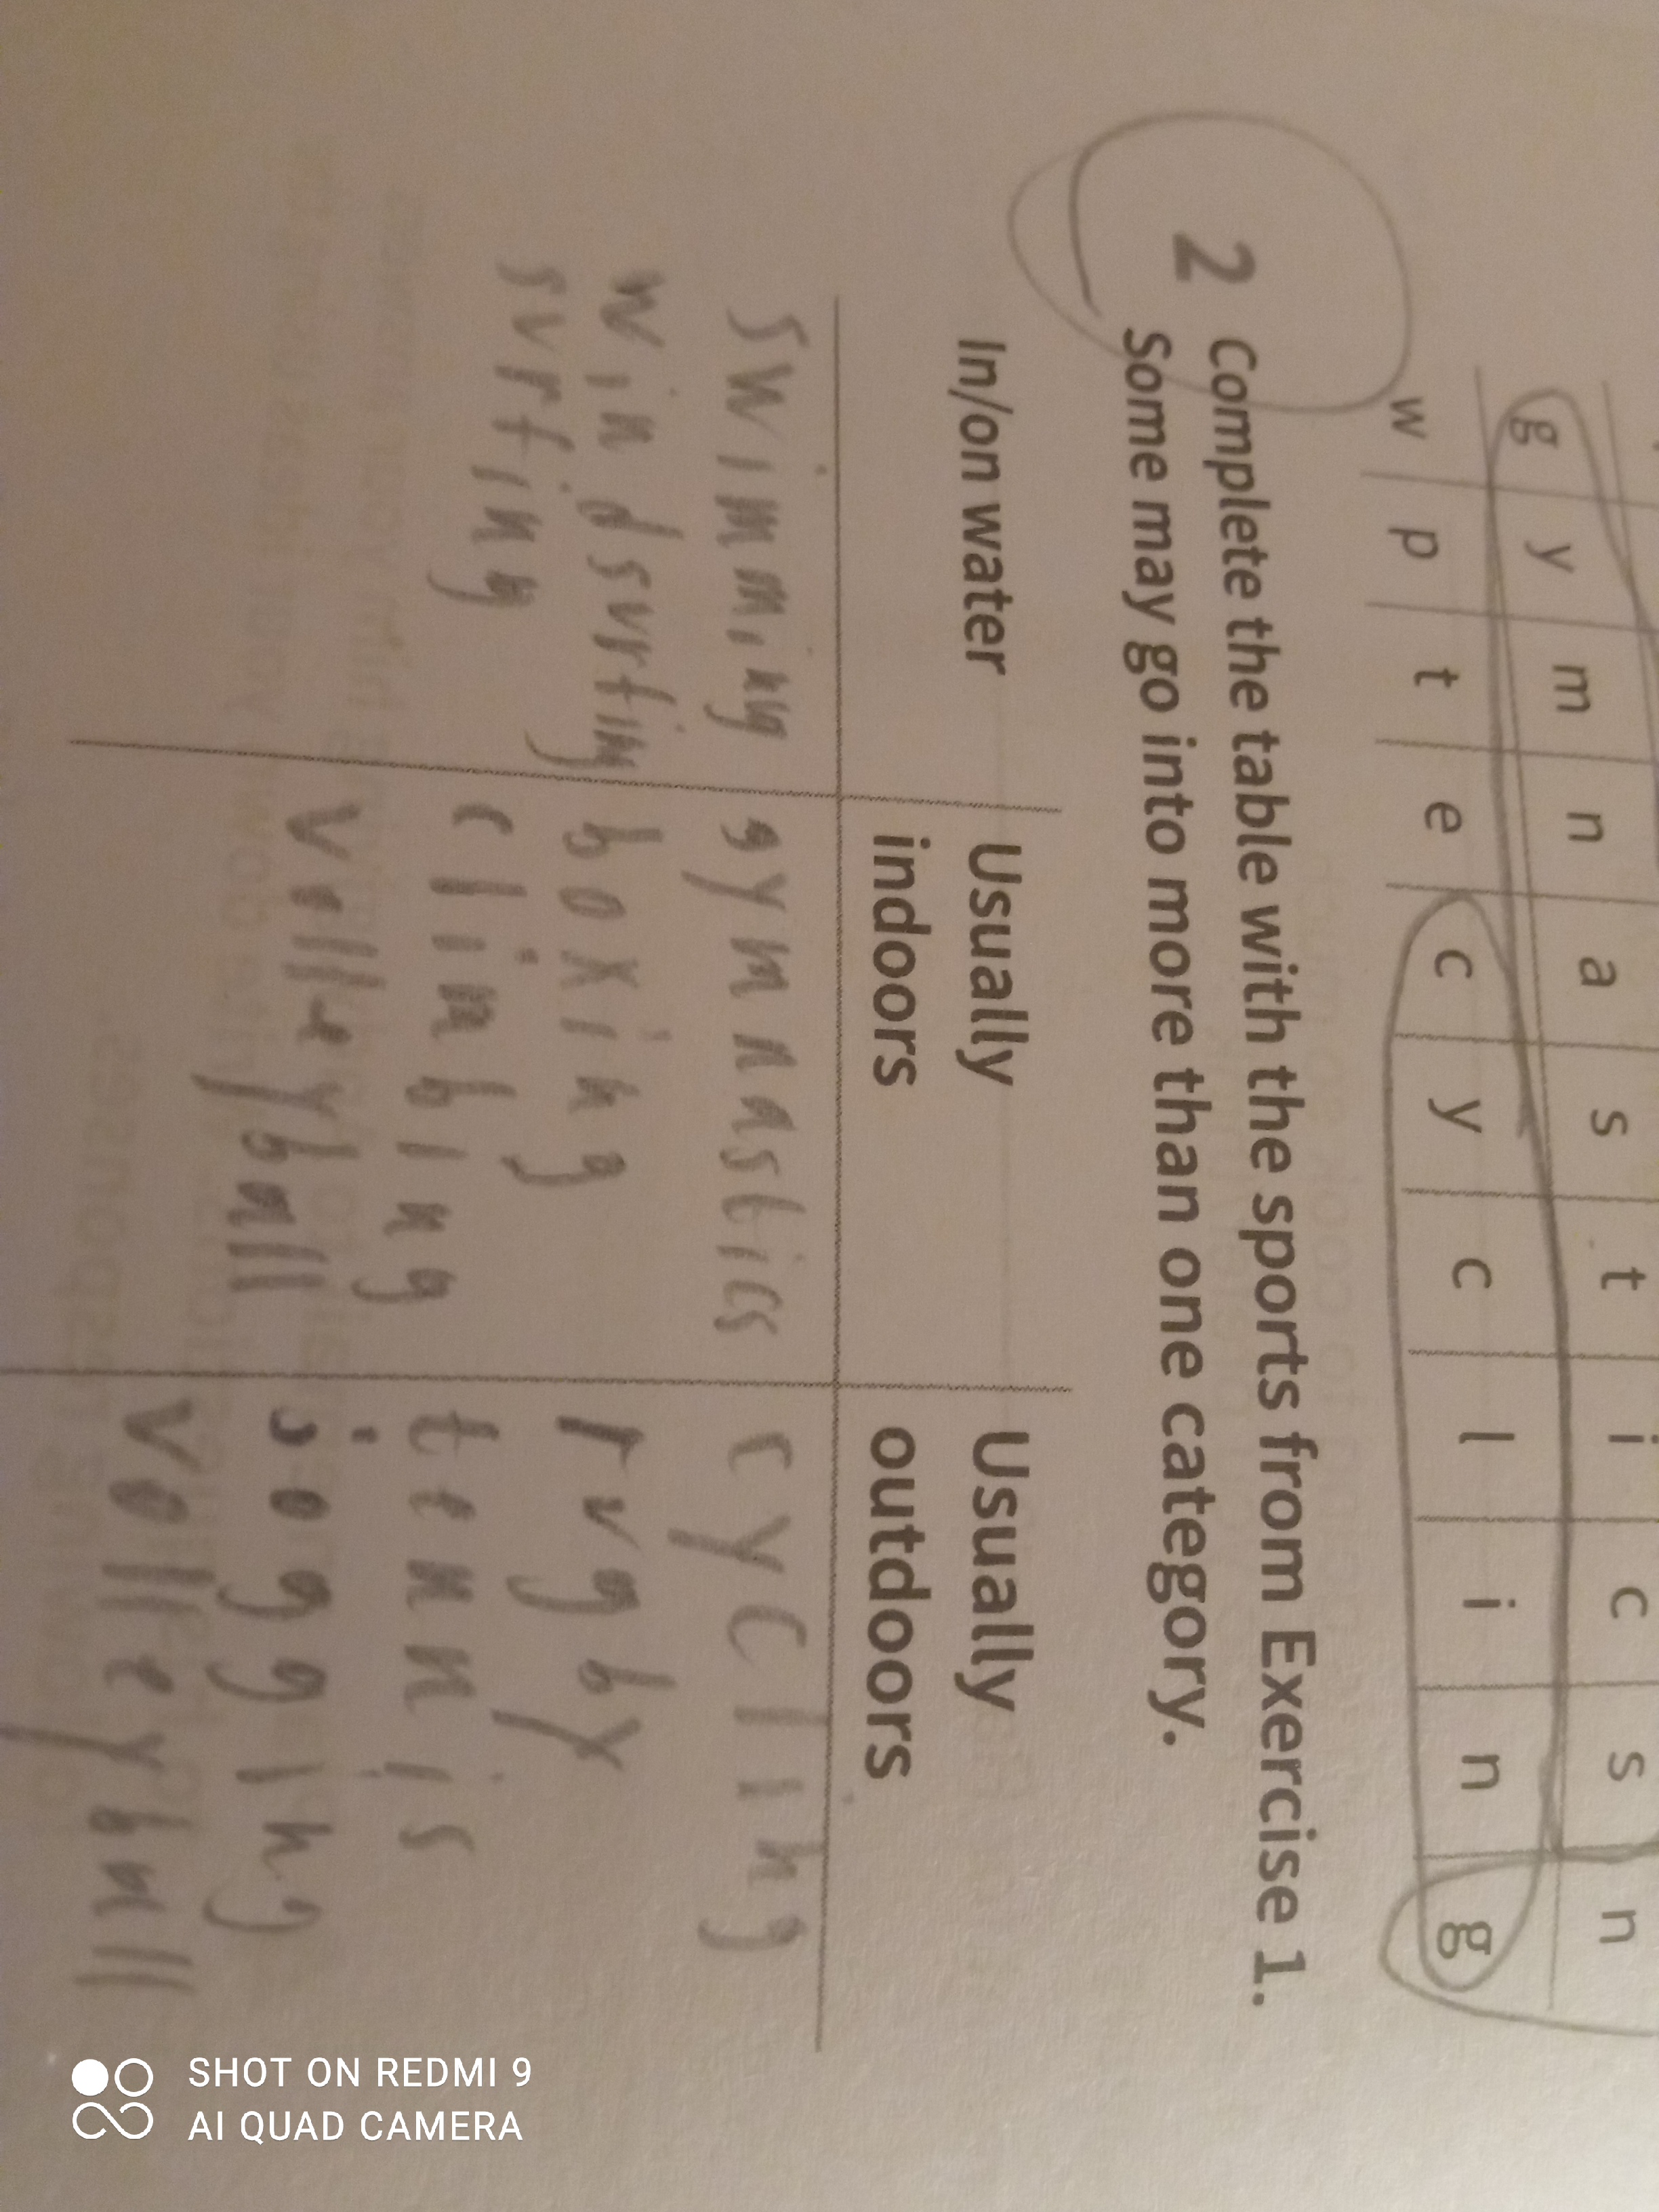 n a s t i c s n
g y m
w p t e c y c l i n g
2 Complete the table with the sports from Exercise 1.
Some may go into more than one category.
In/on water
Usually indoors
Usually outdoors
swimming
windsurfing
surfing
gymnastics
boxing
climbing
volleyball
cycling
rugby
tennis
jogging
volleyball
SHOT ON REDMI 9
AI QUAD CAMERA